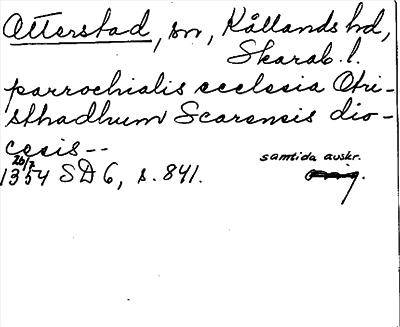 Otterstad, sn, Kållands hd,
Skarab. l.
parrochialis ecclesia Otri-
sthadhum Scarensis dio-
cesis--
26/7
1354 SD 6, s. 841.
samtida avskr.